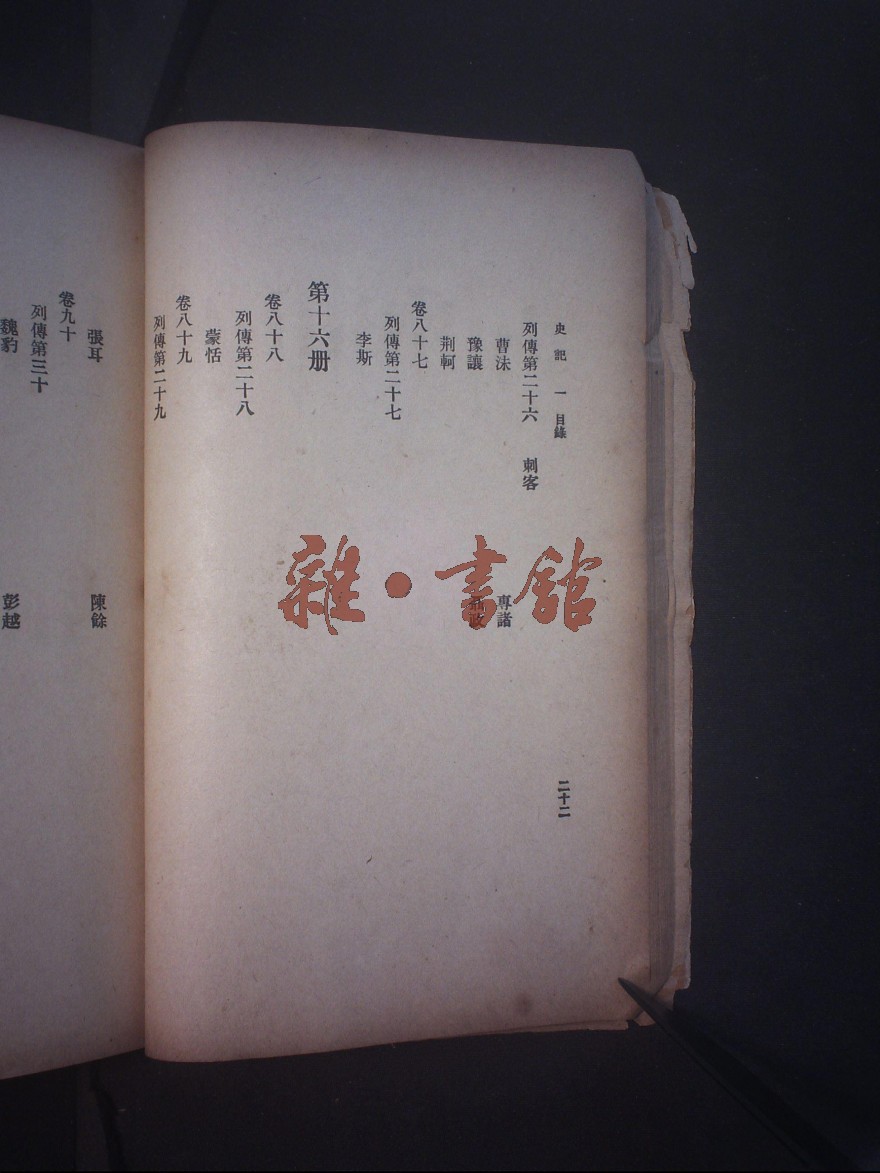 史記 一 目錄
二十二
列傳第二十六 刺客
曹沫 專諸
豫讓 聶政
荆軻
卷八十七
列傳第二十七
李斯
第十六册
卷八十八
列傳第二十八
蒙恬
卷八十九
列傳第二十九
張耳 陳餘
卷九十
列傳第三十
魏豹 彭越
雜·書館